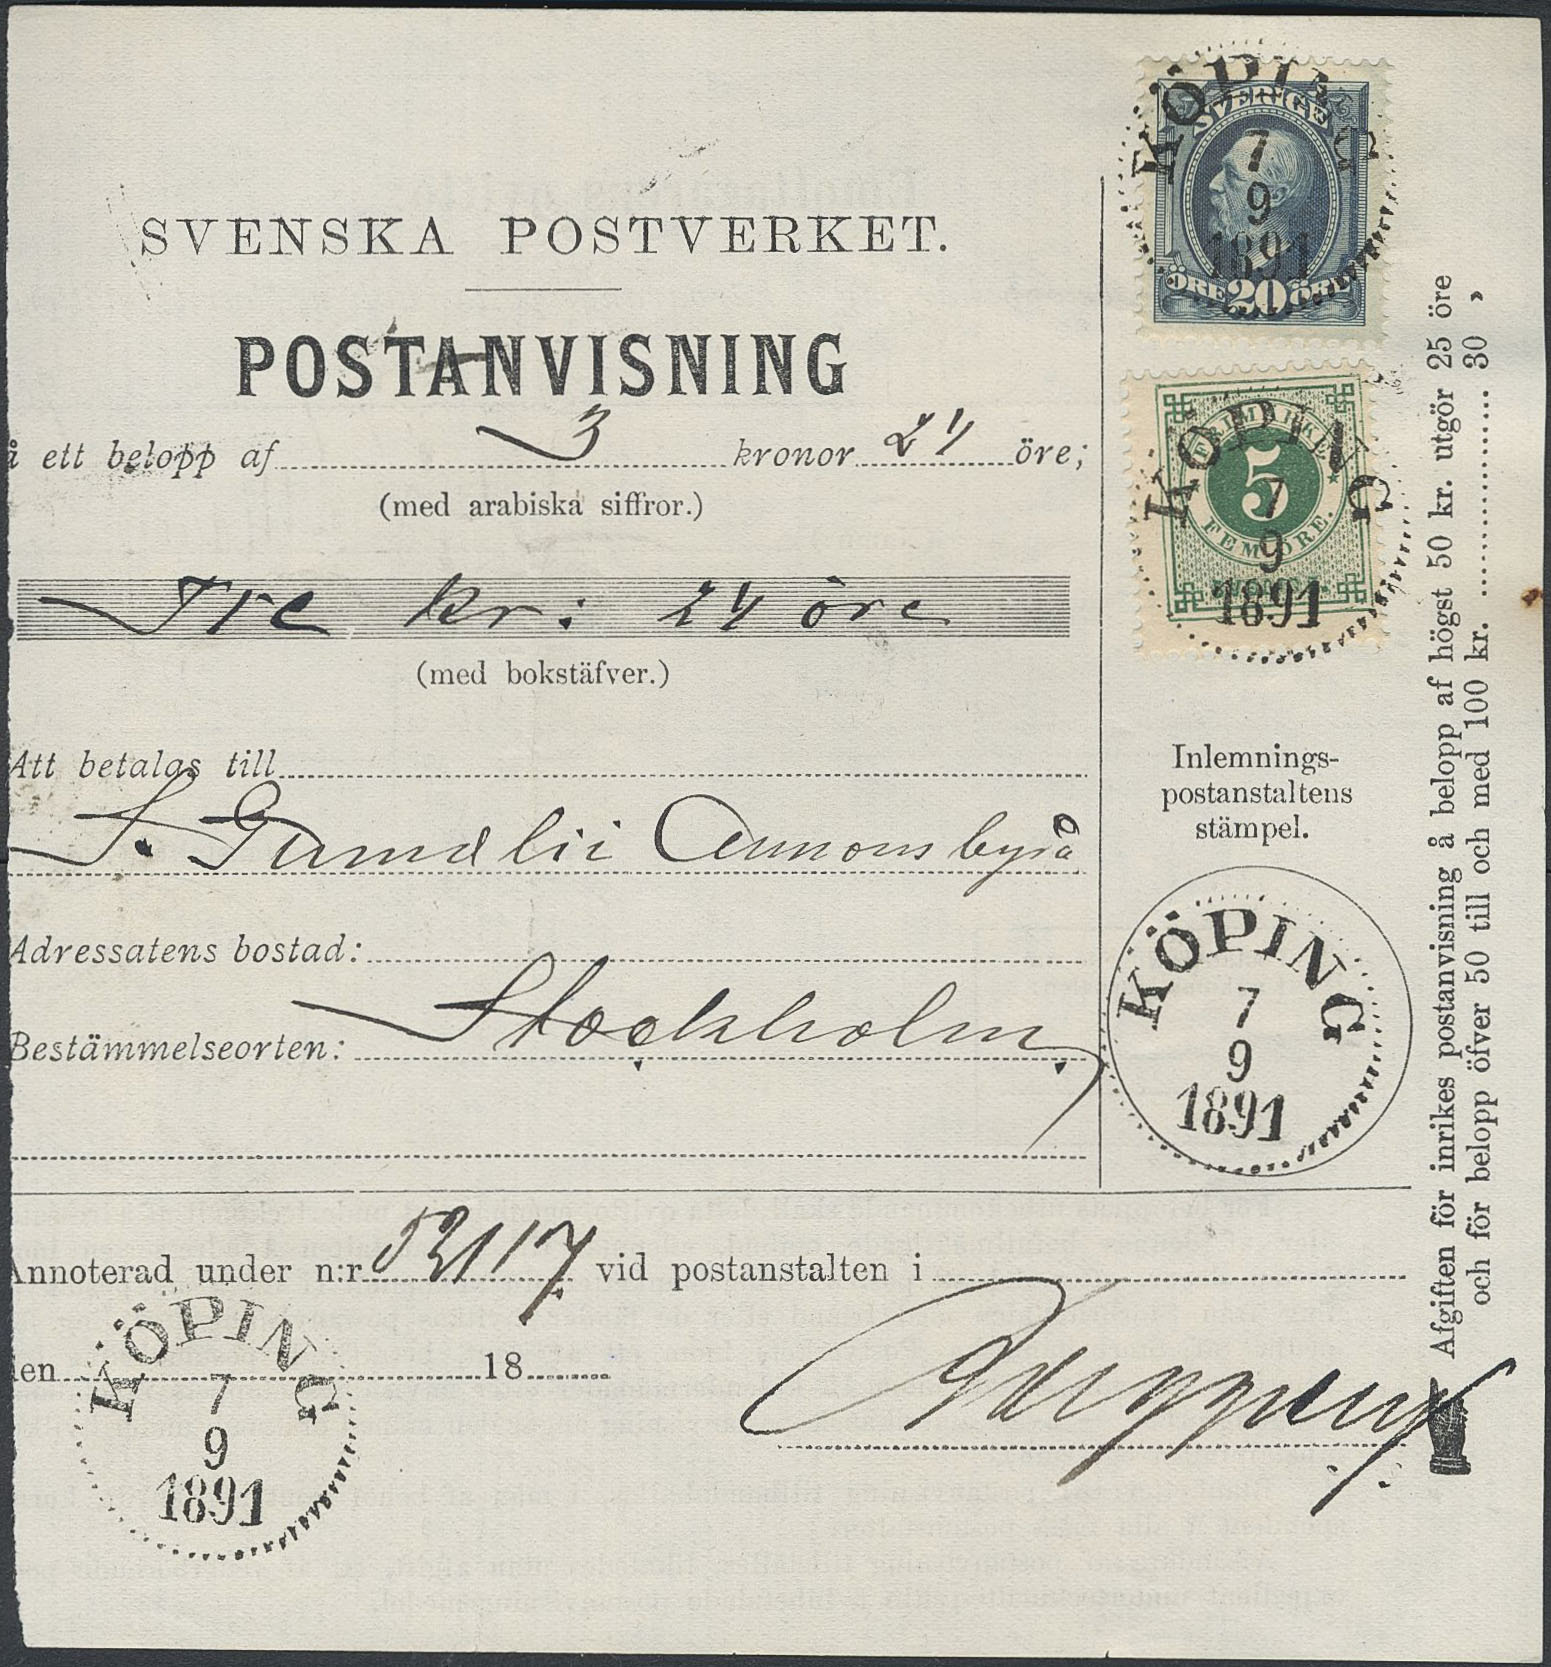 SVENSKA POSTVERKET.
POSTANVISNING
å ett belopp af 3 kronor 24 öre;
(med arabiska siffror.)
Tre kr: 24 öre
(med bokstäfver.)
Att betalas till
S. Gumælii Annonsbyrå
Adressatens bostad:
Bestämmelseorten: Stockholm
Annoterad under n:r 52117 vid postanstalten i
den 18
KÖPING
7
9
1891
KÖPING
7
9
1891
SVERIGE
ÖRE 20 ÖRE
KÖPING
7
9
1891
FRIMÄRKE
5
FEM ÖRE.
Inlemnings-
postanstaltens
stämpel.
KÖPING
7
9
1891
Afgiften för inrikes postanvisning å belopp af högst 50 kr. utgör 25 öre
och för belopp öfver 50 till och med 100 kr. 30 »